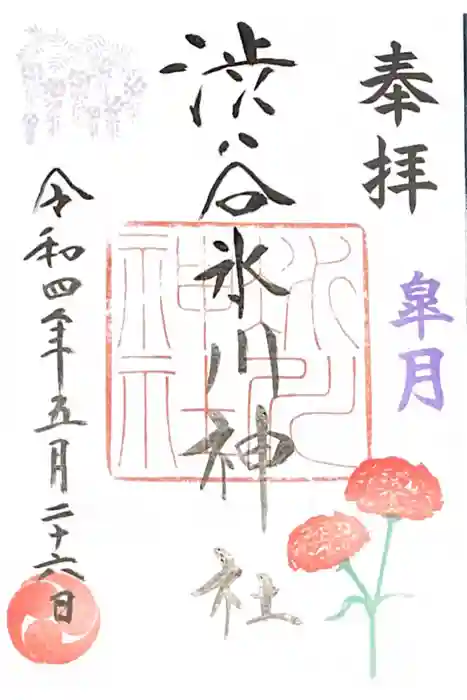 奉拝
皐月
渋谷氷川神社
令和四年五月二十六日
氷川神社